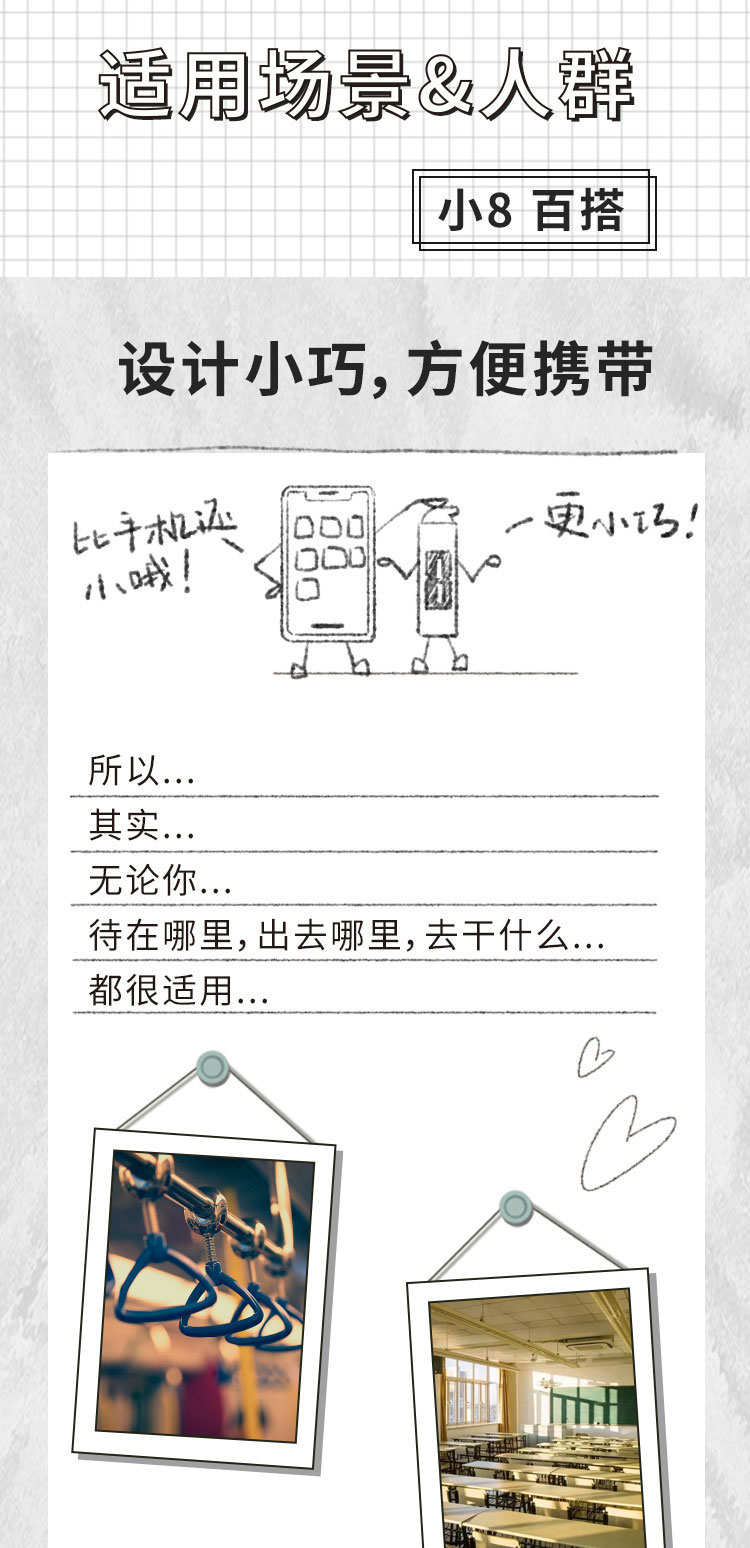 适用场景&人群
小8 百搭
设计小巧，方便携带
比手机还
小哦！
更小巧！
所以...
其实...
无论你...
待在哪里，出去哪里，去干什么...
都很适用...